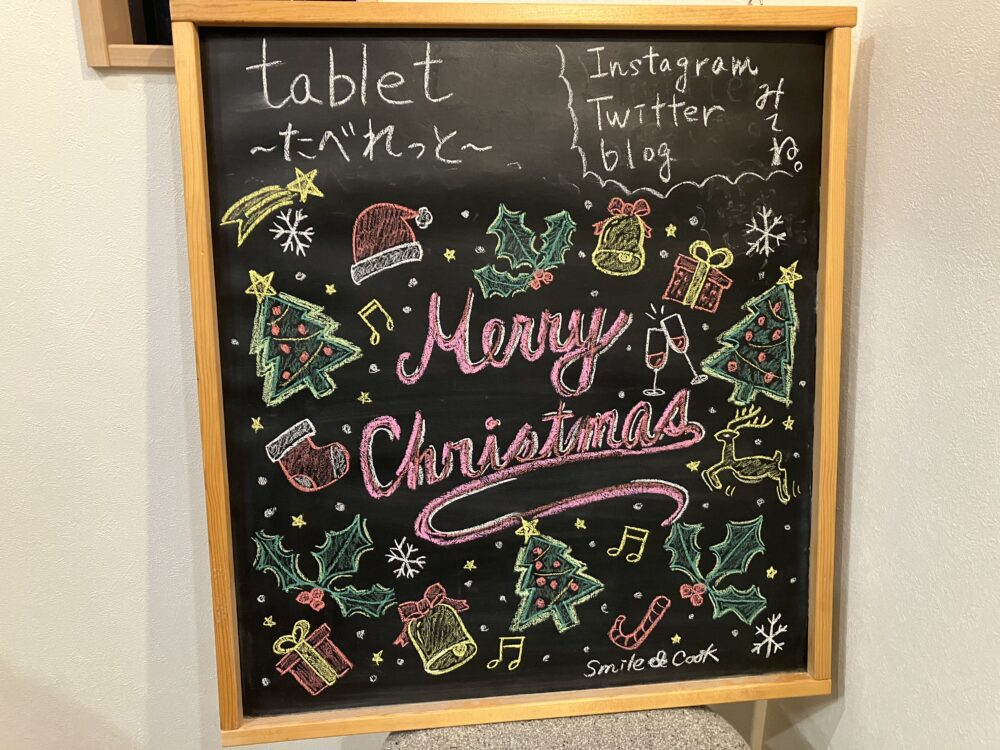 tablet
～たべれっと～
Instagram
Twitter
blog
みてね。
Merry
Christmas
Smile & Cook